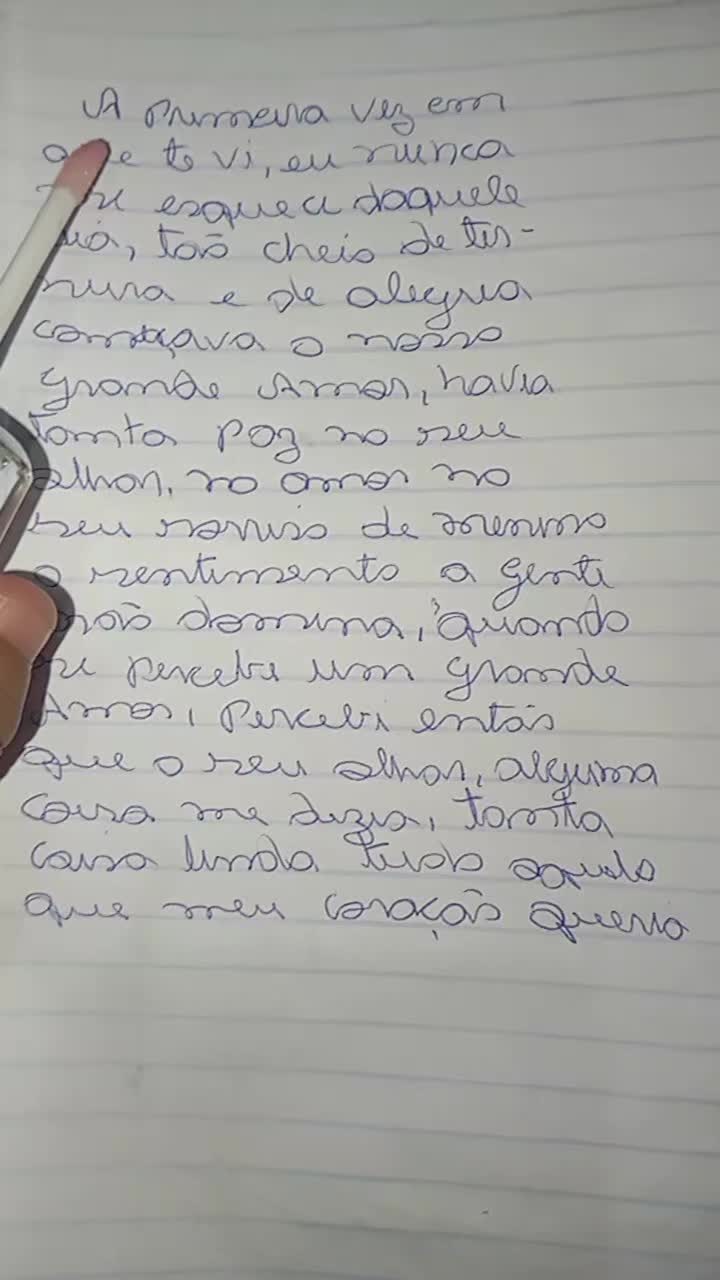 A primeira vez em
que te vi, eu nunca
me esqueci daquele
dia, tão cheio de ter-
nura e de alegria
começava o nosso
grande Amor, havia
tanta paz no seu
olhar, no amor no
seu sorriso de menino
o sentimento a gente
não domina, quando
se percebe um grande
Amor, Percebi então
que o seu olhar, alguma
coisa me dizia, tanta
coisa linda tudo aquilo
que meu coração queria